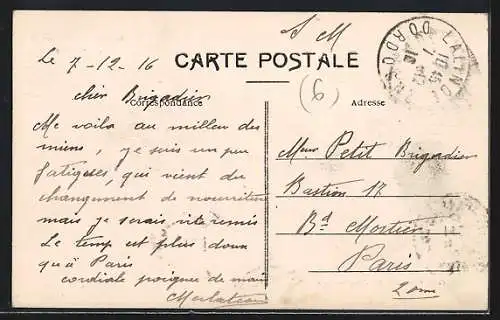 S M
Le 7-12-16
CARTE POSTALE
LALINDE
DORDOGNE
(6)
cher Brigadier
Correspondance
Adresse
Me voila au millieu des
miens, je suis un peu
fatigué, qui vient du
changement de nourriture
mais je serais vite remis
Le temp est plus doux
qu'à Paris
cordiale poignée de main
Monsieur Petit Brigadier
Bastion 17
Bd Mortier
Paris
20me